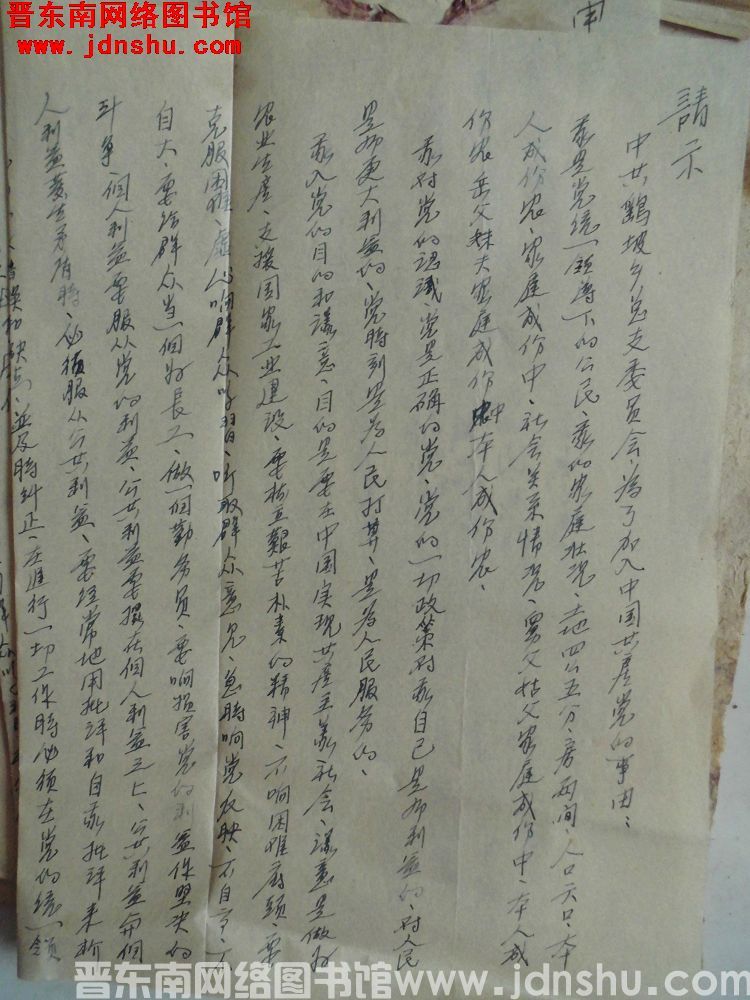 晋东南网络图书馆
www.jdnshu.com
請示
中共鵝坡乡总支委员会为了加入中国共产党的事由：
我是党统一領導下的公民、我的家庭狀况、土地四亩五分、房两间、人口六口、本
人成份农、家庭成份中、社会关系情况、舅父姑父家庭成份中、本人成
份农岳父妹夫家庭成份中本人成份农、
我对党的認識、党是正确的党、党的一切政策对我自己是有利益的、对人民
是有更大利益的、党時刻是为人民打算、是为人民服务的、
我入党的目的和議意、目的是要在中国实現共产主義社会、議意是做好
农业生產、支援国家工业建設、要树立艱苦朴素的精神、不响困难底頭、要
克服困难、虚心响群众学習、听取群众意見、急時响党反映、不自高、不
自大、要给群众当一個好長工、做一個勤务員、要响損害党的利益作堅决的
斗争、個人利益要服从党的利益、公共利益要摆在個人利益之上、公共利益和個
人利益蔆生矛盾時、必須服从公共利益、要经常地用批评和自我批评来
缺点、並及時糾正、在進行一切工作時必须在党的统一領
晋东南网络图书馆www.jdnshu.com